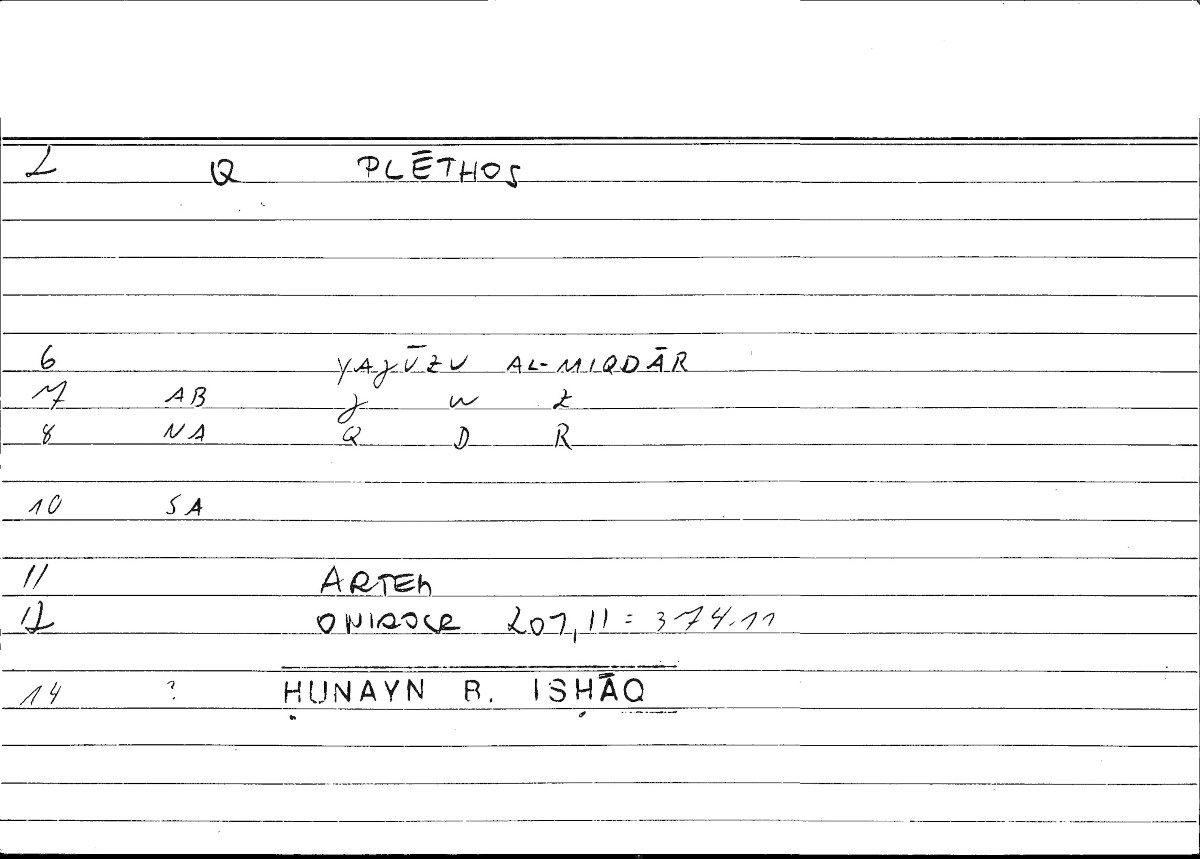 2 Q PLĒTHOS
6 YAJŪZU AL-MIQDĀR
7 AB J W Z
8 NA Q D R
10 SA
11 ARTEM
12 ONIROCR 201,11 = 374.11
14 ? ḤUNAYN B. ISḤĀQ